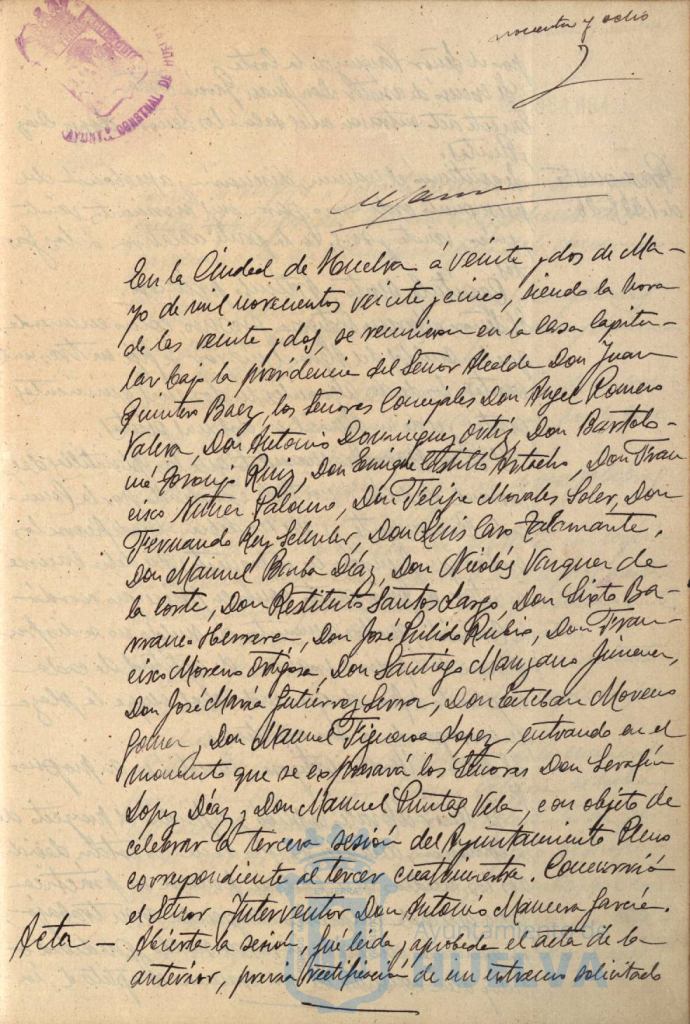 noventa y ocho
AYUNTº CONSTNAL DE HUEL
En la Ciudad de Huelva á veinte y dos de Ma-
yo de mil novecientos veinte y cinco, siendo la hora
de las veinte y dos, se reunieron en la Casa Capitu-
lar bajo la presidencia del Señor Alcalde Don Juan
Quintero Báez, los Señores Concejales Don Angel Romero
Valera, Don Antonio Dominguez Ortiz, Don Bartolo-
mé Toronjo Ruiz, Don Enrique Castillo Don Fran
cisco Nuñez Palomo, Don Felipe Morales Soler, Don
Fernando Rey Don Luis Caro Talamante,
Don Manuel Barba Díaz, Don Nicolás Vazquez de
la Corte, Don Restituto Santos Largo, Don Sixto Ba-
rranco Herrera, Don José Pulido Rubio, Don Fran-
cisco Moreno Ortigosa, Don Santiago Manzano Jimenez,
Don José María Gutiérrez Serra, Don Esteban Moreno
Gomez, Don Manuel Figueroa Lopez, entrando en el
momento que se expresará los Señores Don Serafín
Lopez Díaz y Don Manuel Puntas Vela, con objeto de
celebrar la tercera sesión del Ayuntamiento Pleno
correspondiente al tercer cuatrimestre. Concurrió
el Señor Interventor Don Antonio Mancera García.
Acta - Abierta la sesión, fué leida y aprobada el acta de la
anterior, previa rectificacion de un extremo solicitado
Ayuntamiento de
HUELVA